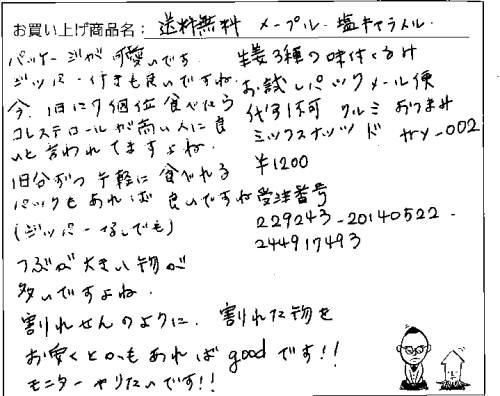 お買い上げ商品名: 送料無料 メープル・塩キャラメル・
生姜3種の味付くるみ
お試しパックメール便
代引不可 クルミ おつまみ
ミックスナッツ ド ヤメ-002
¥1200
受注番号
229243-20140522-
244917493
パッケージが可愛いです。
ジッパー付きも良いですね。
今、1日に7個位食べたら
コレステロールが高い人に良
いと言われてますよね。
1日分ずつ手軽に食べれる
パックもあれば良いですね
(ジッパーなしでも)
つぶが大きい物が
多いですよね。
割れせんのように、割れた物を
お安くとかもあればgoodです!!
モニターやりたいです!!